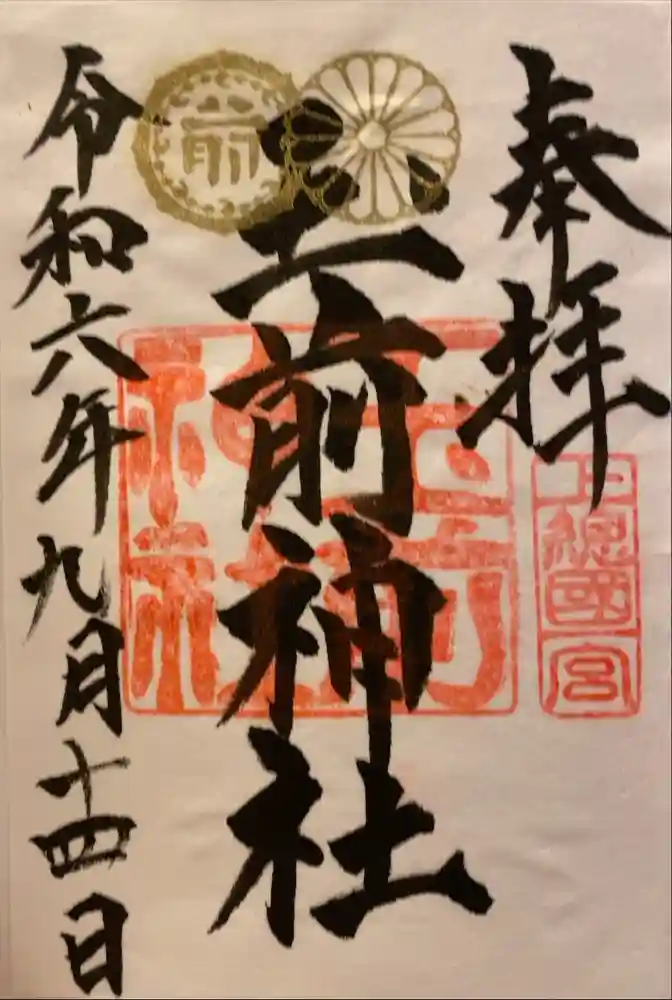 奉拝
上總國一宮
玉前神社
玉前神社
前
令和六年九月十四日